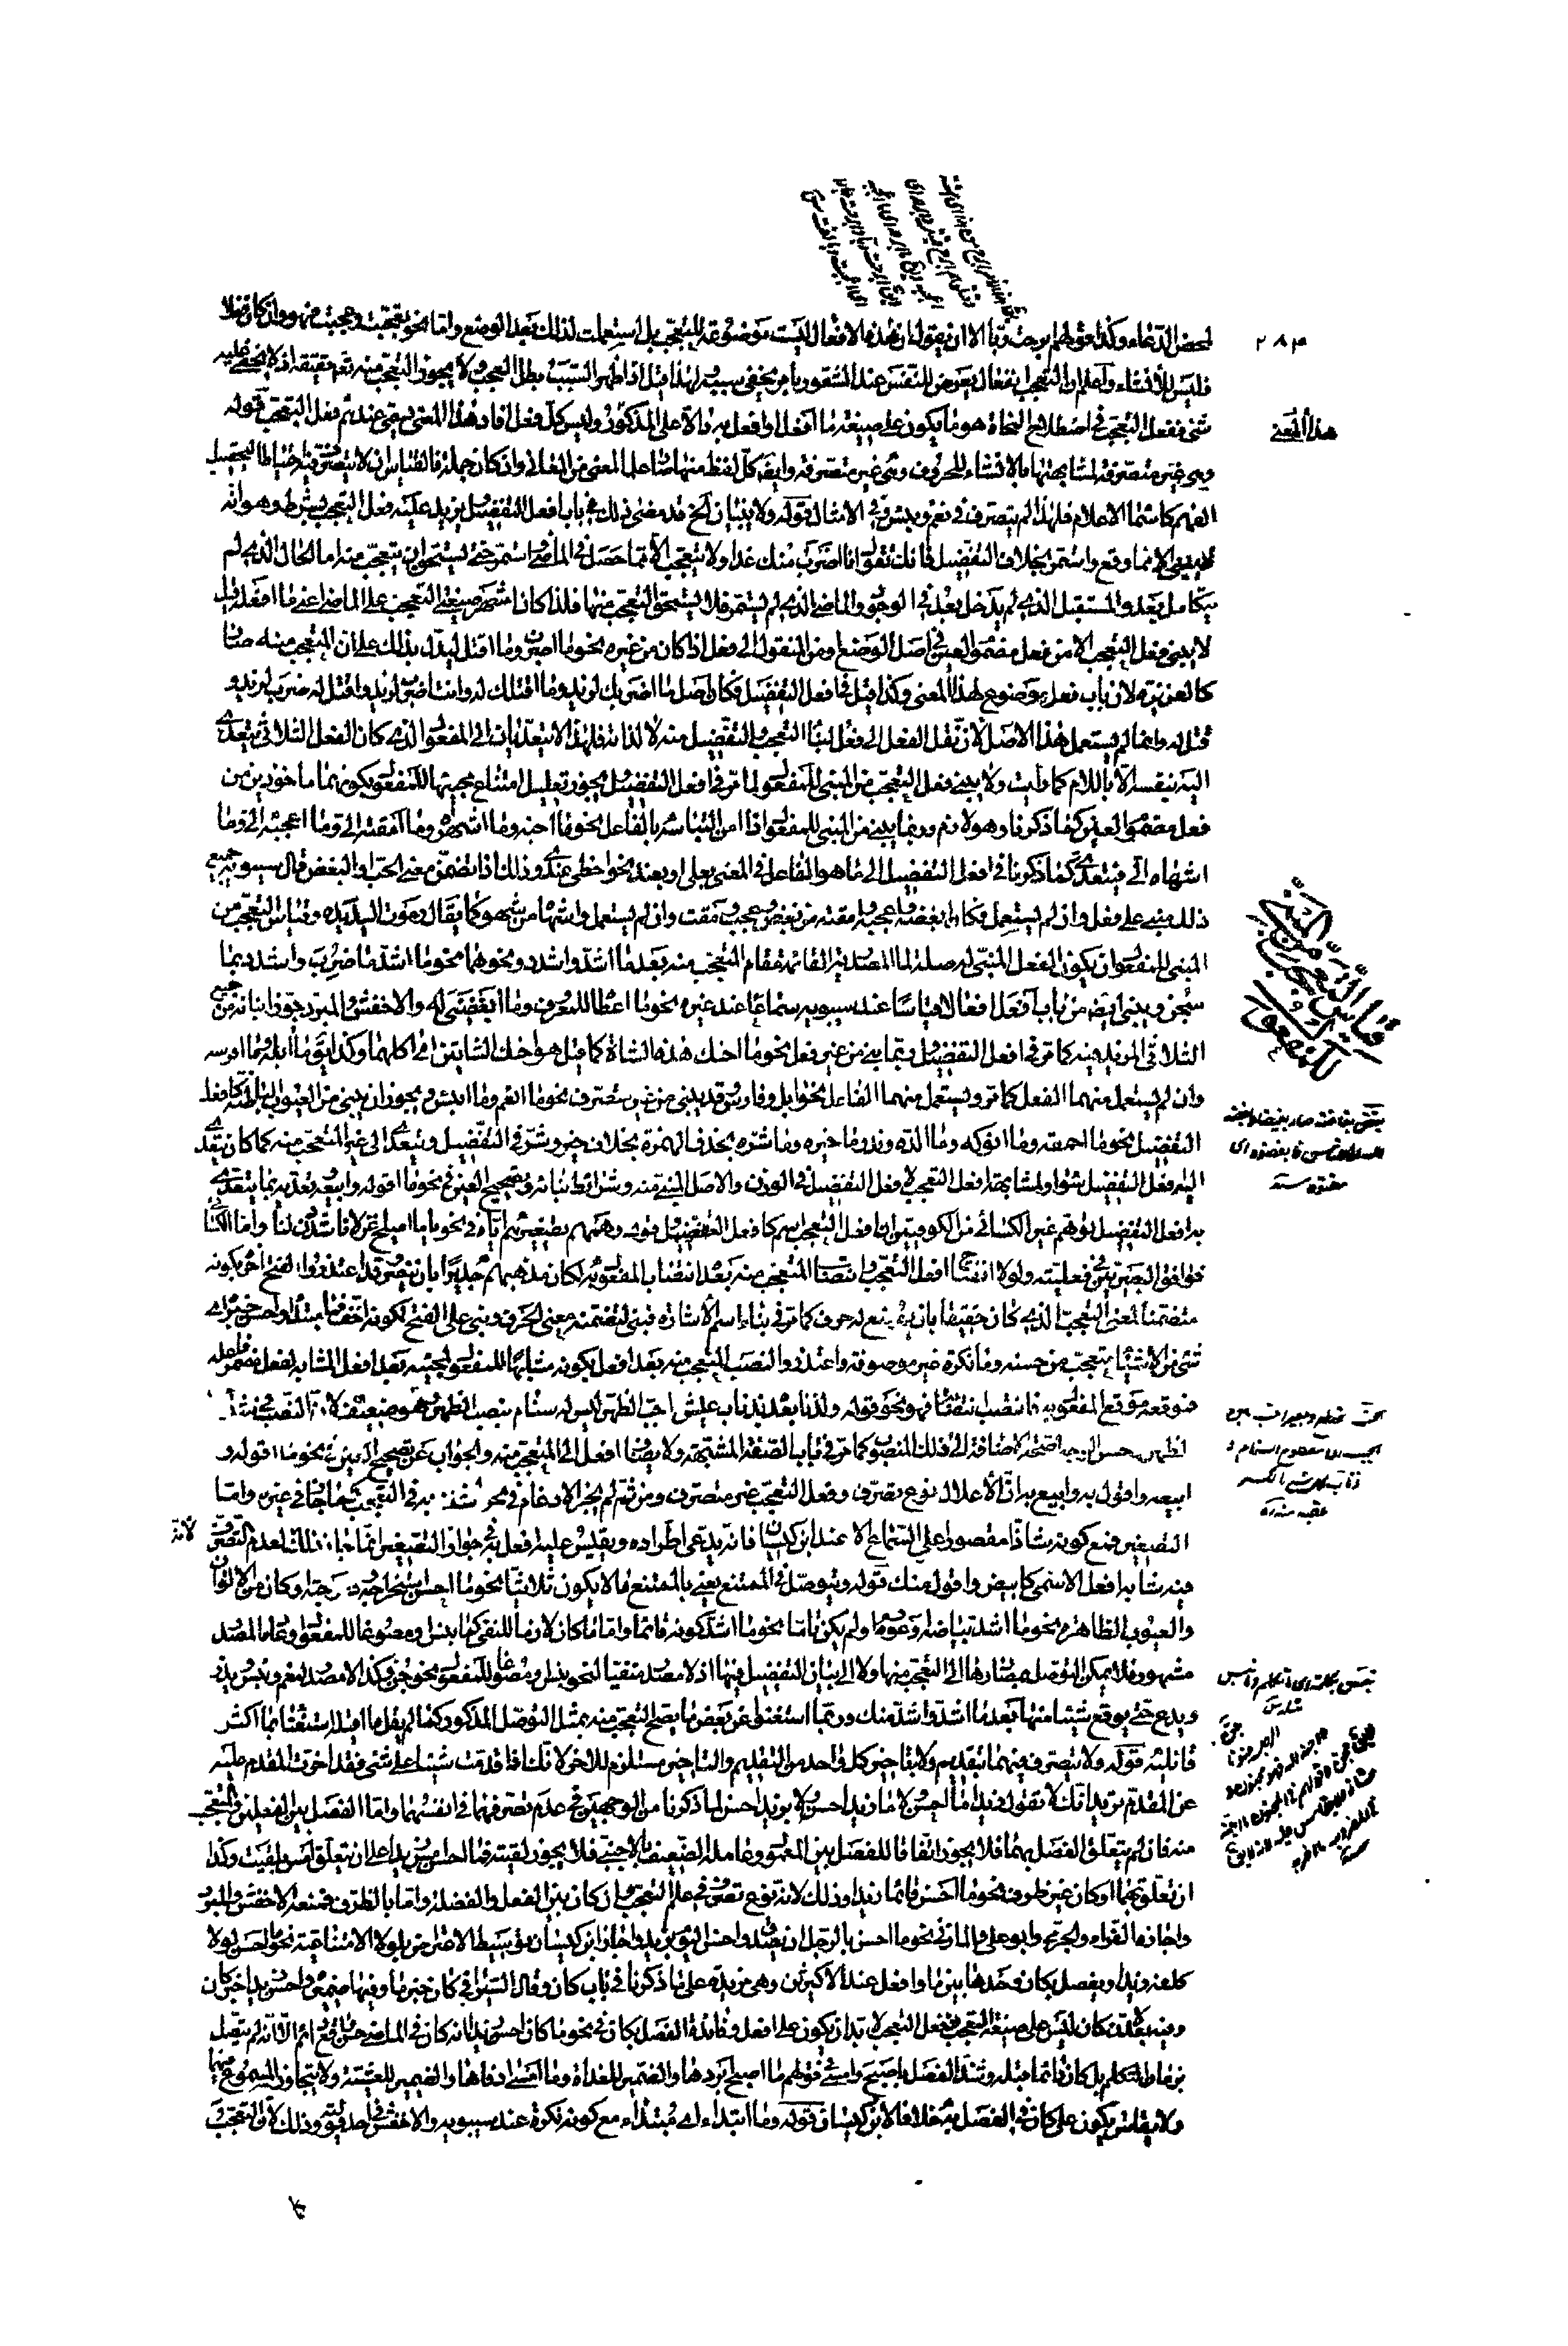 لمحض الدعاء وكذا قولهم برحت ربا الا ان يقول ان هذه الافعال ليست موضوعة للتعجب بل استعملت لذلك بعد الوضع واما نحو تعجبت وعجبت فهو وان كان فعلا
فليس للانشاء واعلم ان التعجب انفعال يعرض للنفس عند الشعور بامر يخفى سببه ولهذا قيل اذا ظهر السبب بطل العجب ولا يجوز التعجب منه تعالى حقيقة اذ لا يخفى عليه
شئ ففعل التعجب في اصطلاح النحاة هو ما يكون على صيغة ما افعل او افعل به دالا على المذكور وليس كل فعل افاد هذا المعنى يسمى عندهم فعل التعجب قوله
وهي غير متصرفة لمشابهتها بالانشاء للحروف وهي غير متصرفة وايضا كل لفظ منها صار علما لمعنى من المعاني وان كان جملة فالقياس ان لا يتصرف فيه احتياطا لتحصيل
الفهم كاسماء الاعلام فلهذا لم يتصرف في نعم وبئس وفي الامثال قوله ولا يبنيان الخ قد مضى ذلك في باب افعل التفضيل يزيد عليه فعل التعجب بشرط وهو انه
لا يبنى الا مما وقع واستمر بخلاف التفضيل فانك تقول انا اضرب منك غدا ولا يتعجب الا مما حصل في الماضي واستمر حتى يستحق ان يتعجب منه اما الحال الذي لم
يتكامل بعد والمستقبل الذي لم يدخل بعد في الوجود والماضي الذي لم يستمر فلا تستحق التعجب منها فلذا كان اشهر صيغتي التعجب على الماضي اعني ما افعل قيل
لا يبنى فعل التعجب الا من فعل مضموم العين في اصل الوضع او من المنقول الى فعل اذا كان من غيره نحو ما اضرب وما اقتل ليدل بذلك على ان المتعجب منه صار
كالغريزة لان باب فعل موضوع لهذا المعنى وكذا قيل في افعل التفضيل فكان اصل ما اضربك لزيد وما اقتلك له وانت اضرب لزيد واقتل له ضرب لزيد و
قتل له وانما لم يستعمل هذا الاصل لان نقل الفعل الى فعل لبناء التعجب والتفضيل منه لا لذاته فلهذا لا يتعديان الى المفعول الذي كان الفعل الثلاثي يتعدى
اليه بنفسه الا باللام كما رأيت ولا يبنى فعل التعجب من المبني للمفعول لما مر في افعل التفضيل ويجوز تعليل امتناع مجيئهما للمفعول بكونهما ماخوذين من
فعل مضموم العين كما ذكرنا وهو لازم وربما يبنى من المبني للمفعول اذا امن التباسه بالفاعل نحو ما اجنه وما اشهره وما امقته الي وما اعجبه الي وما
اشهاه الي فيتعدى كما ذكرنا في افعل التفضيل الى ما هو الفاعل في المعنى بعلى او بعند نحو احظى عندي وذلك اذا تضمن معنى الحب والبغض قال سيبويه جميع
ذلك مبني على فعل وان لم يستعمل فكان ما ابغضه وما اعجبه وما امقته من بغض وعجب ومقت وان لم يستعمل واشهاه من شهو كما يقال رموت اليد يده وقياس التعجب من
المبني للمفعول ان يكون الفعل المبني له صلة لما المصدرية القائمة مقام المتعجب منه بعد ما اشد واشدد ونحوهما نحو ما اشد ما ضرب واشدد بما
سجن ويبنى ايضا من باب افعل افعالا قياسا عند سيبويه سماعا عند غيره نحو ما اعطاه للمعروف وما ابغضني له والاخفش والمبرد جوزا بناءه من جميع
الثلاثي المزيد فيه كما مر في افعل التفضيل وربما بني من غير فعل نحو ما احنك هذه الشاة كما قيل هو احنك الشاتين اي اكلهما وكذا يقولون ما ابله وما افرسه
وان لم يستعمل منهما الفعل كما مر ويستعمل منهما الفاعل نحو ابل وفارس وقد يبنى من غير متصرف نحو ما انعم وما ابئس ويجوز ان يبنى من العيوب الباطنة كافعل
التفضيل نحو ما احمقه وما انوكه وما الده وندر ما خيره وما شره بحذف الهمزة بخلاف خير وشر في التفضيل ويتعدى الى غير المتعجب منه كما كان يتعدى
اليه افعل التفضيل سواء ولمشابهة افعل التعجب لافعل التفضيل في الوزن والاصل المبني منه وشرائط بنائه وتصحيح العين في نحو ما اقوله وابيعه وتعديه بما يتعدى
به افعل التفضيل توهم غير الكسائي من الكوفيين ان افعل التعجب اسم كافعل التفضيل وقوى وهمهم تصغيرهم اياه في نحو يا ما اميلح غزلانا شدن لنا واما الكسائي
فوافق البصريين في فعليته ولولا انفتاح افعل التعجب وانتصاب المتعجب منه بعد انتصاب المفعول به لكان مذهبهم جديرا بان ينصر وقد اعتذروا لفتح آخره بكونه
متضمنا لمعنى التعجب الذي كان حقيقا بان يوضع له حرف كما مر في بناء اسم الاشارة فبني لتضمنه معنى الحرف وبني على الفتح لكونه اخف فما مبتدأ واحسن خبره اي
شئ من الاشياء يتعجب من حسنه وما نكرة غير موصوفة واعتذروا لنصب المتعجب منه بعد افعل بكونه مشابها للمفعول لمجيئه بعد افعل المشابه لفعل مضمر فاعله
فموقعه موقع المفعول به فانتصب انتصابه فهو نحو قوله ولذنا بعده بذناب عيش اجب الظهر ليس له سنام بنصب الظهر وهو ضعيف لان النصب في مثل
الظهر وحسن الوجه
ابيعه واقول به وابيع به ان الاعلال نوع تصرف وفعل التعجب غير متصرف ومن ثم لم يجز الادغام في نحو اشدد به في التعجب كما جاز في غيره واما
التصغير فمع كونه شاذا مقصورا على السماع الا عند ابن كيسان فانه يدعي اطراده ويقيس عليه افعل به في جواز التصغير انما جاء ذلك لعدم التصرف لانه
فيه شابه افعل الاسمي كابيض واقول منك قوله ويتوصل في الممتنع يعني بالممتنع ما لا يكون ثلاثيا نحو ما احسن استخراجه ودحرجته وكان من الالوان
والعيوب الظاهرة نحو ما اشد بياضه وعوره وما لم يكن تاما نحو ما اشد كونه قائما واما ما كان لازما للنفي كما نبس ومصوغا للمفعول وعادم المصدر
مشهور فلا يمكن التوصل بمصادرها الى التعجب منها ولا الى بيان التفضيل فيها اذ لا مصدر منفيا لنحو ينبس ومصوغا للمفعول نحو جن وكذا لا مصدر لنعم وبئس ويذر
ويدع حتى يوقع شيئا منها بعد ما اشد واشدد منك وربما استغنوا عن بعض ما يصح التعجب منه بمثل التوصل المذكور كما لم يقل ما اقيله استغناء بما اكثر
قائلته قوله ولا يتصرف فيهما بتقديم ولا تاخير كل واحد من التقديم والتاخير مستلزم للاخر لانك اذا قدمت شيئا على شئ فقد اخرت المقدم عليه
عن المقدم يريد انك لا تقول زيدا ما احسن ولا ما زيدا احسن ولا بزيد احسن لما ذكرنا من الوجهين في عدم تصرفهما في انفسهما واما الفصل بين الفعلين والمتعجب
منه فان لم يتعلق الفصل بهما فلا يجوز اتفاقا للفصل بين المعمول وعامله الضعيف بالاجنبي فلا يجوز لقيته فما احسن امس زيدا على ان يتعلق امس بلقيت وكذا
ان تعلق بهما وكان غير ظرف نحو ما احسن قائما زيدا وذلك لانه نوع تصرف في علم التعجب وان كان بين الفعل والفضلة واما بالظرف فمنعه الاخفش والمبرد
واجازه الفراء والجرمي وابو علي والمازني نحو ما احسن بالرجل ان يصدق واحسن اليوم بزيد واجاز ابن كيسان توسيط الاعتراض بلولا الامتناعية نحو ما احسن لولا
كلفه زيدا ويفصل بكان وحدها بين ما وافعل عند الاكثرين وهي مزيدة على ما ذكرنا في باب كان وقال السيرافي كان خبر ما وفيها ضميره واحسن زيدا خبر كان
وفيه بعد لان كان ليس على صيغة التعجب وفعل التعجب لا بد ان يكون على افعل وفائدة الفصل بكان في نحو ما كان احسن زيدا انه كان في الماضي حسن واقع دائم الا انه لم يتصل
بزمان التكلم بل كان دائما قبله وشذ الفصل باصبح وامسى في قولهم ما اصبح ابردها والضمير للغداة وما امسى ادفاها والضمير للعشية ولا يتجاوز المسموع فيهما
ولا يقاس يكون على كان في الفصل به خلافا لابن كيسان قوله وما ابتداء اي مبتداء مع كونه نكرة عند سيبويه والاخفش في احد قوليه وذلك لان التعجب
٢٨٤
هذا المعنى
قياس التعجب من المبني للمفعول